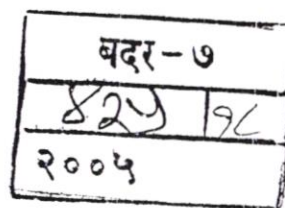 बदर - ७
४२५ | १८
२००५